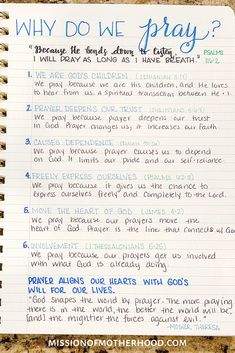 WHY DO WE pray?
"Because He bends down to listen, PSALMS
I WILL PRAY AS LONG AS I HAVE BREATH." 116:2
1. WE ARE GOD'S CHILDREN
We pray because we are His children, and He loves
to hear from us. A spiritual transaction between the
2. PRAYER DEEPENS OUR TRUST
We pray because prayer deepens our trust
in God. Prayer changes us, it increases our faith.
3. CAUSES DEPENDENCE
We pray because prayer causes us to depend
on God. It limits our pride and our self-reliance.
4. FREELY EXPRESS OURSELVES
We pray because it gives us the chance to
express ourselves freely and completely to the Lord.
5. MOVE THE HEART OF GOD (JAMES
We pray because our prayers move the
heart of God. Prayer is the line that connects
6. INVOLVEMENT (1 THESSALONIANS
We pray because our prayers get us involved
with what God is already doing.
PRAYER ALIGNS OUR HEARTS WITH GOD'S
WILL FOR OUR LIVES.
"God shapes the world by prayer. The more praying
there is in the world, the better the world will be,
and the mightier the forces against evil."
-MOTHER THERESA
MISSIONOFMOTHERHOOD.COM